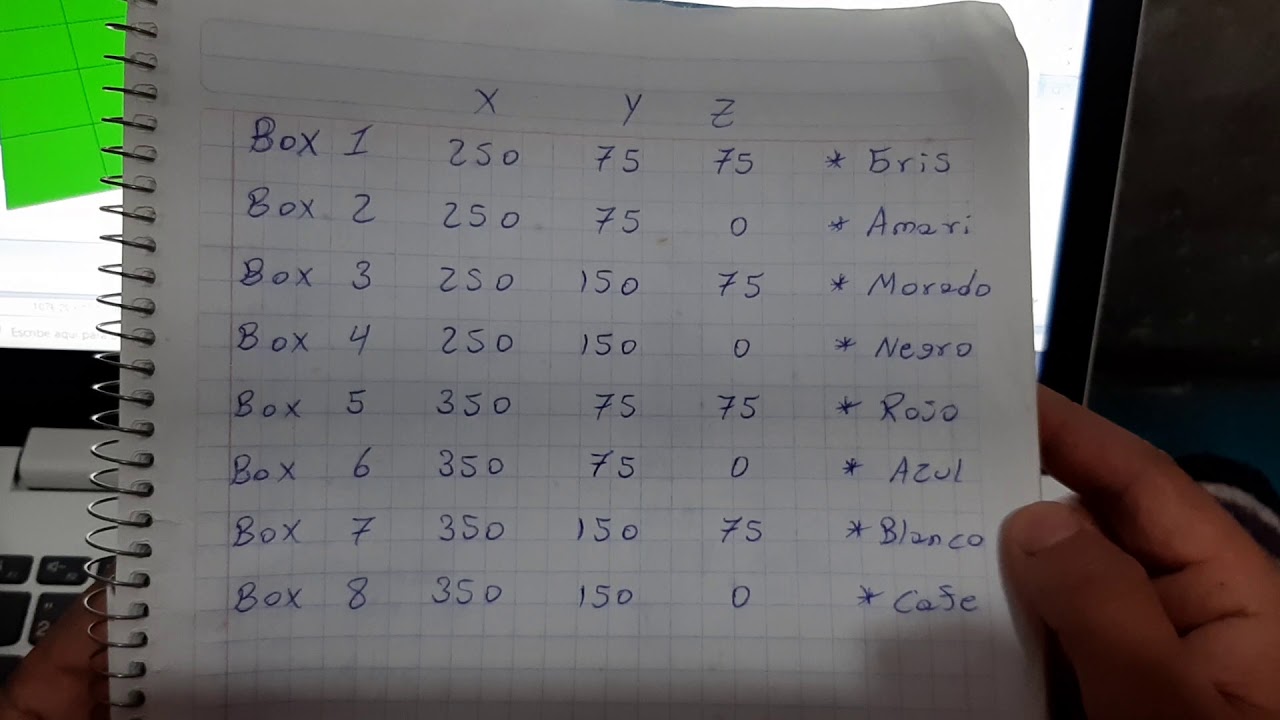 X Y Z
Box 1 250 75 75 * Gris
Box 2 250 75 0 * Amari
Box 3 250 150 75 * Morado
Box 4 250 150 0 * Negro
Box 5 350 75 75 * Rojo
Box 6 350 75 0 * Azul
Box 7 350 150 75 * Blanco
Box 8 350 150 0 * Cafe
Escribe aquí para